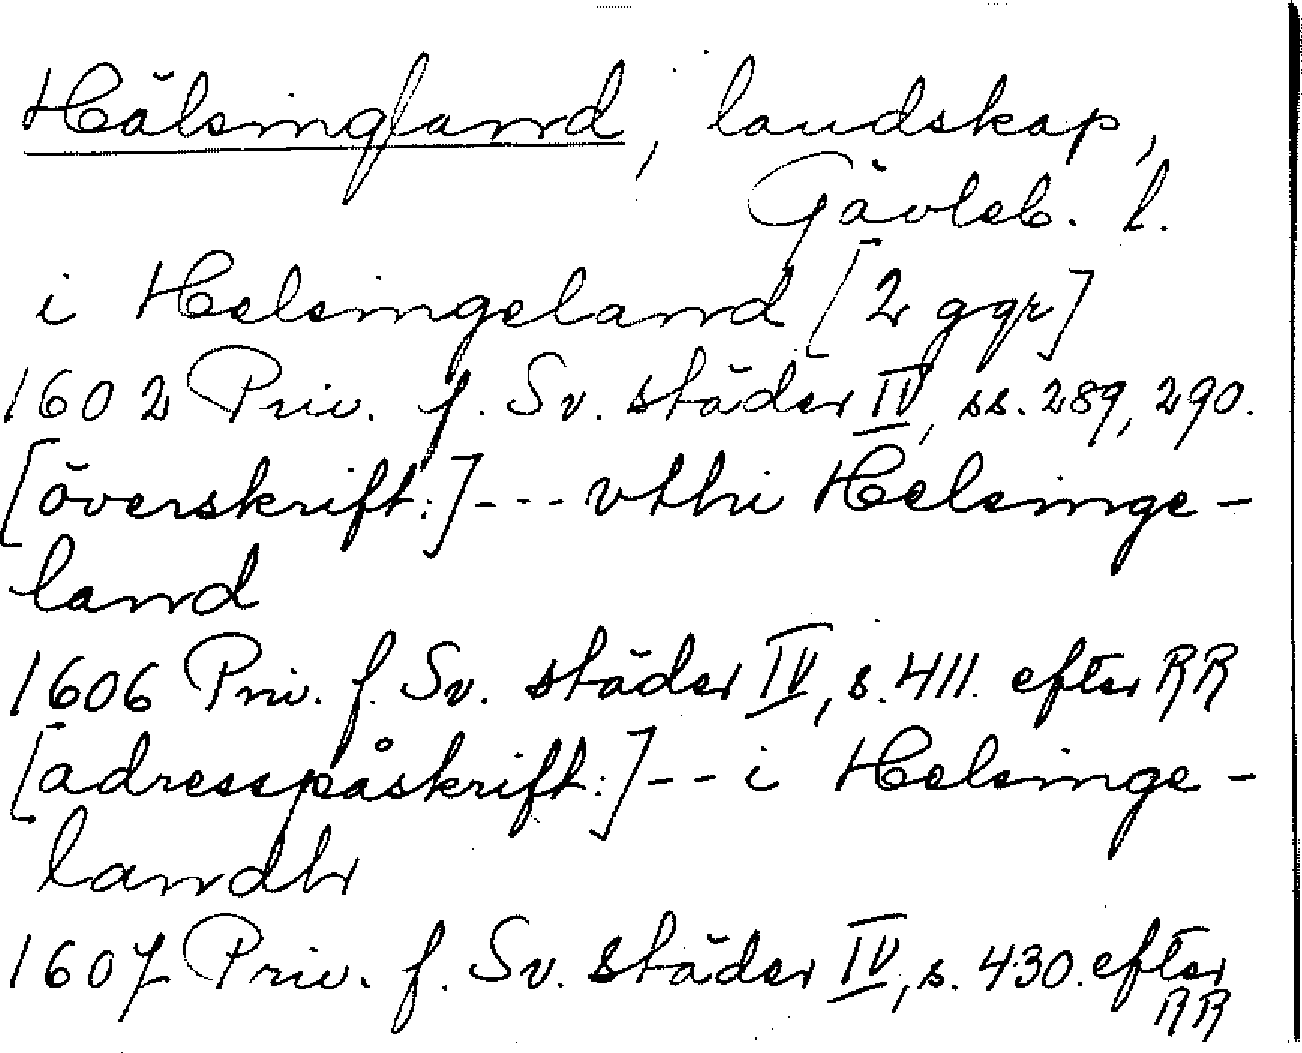 Hälsingland, landskap,
Gävleb. l.
i Helsingeland [2 ggr]
1602 Priv. f. Sv. städer IV, ss. 289, 290.
[överskrift:]--- vthi Helsinge-
land
1606 Priv. f. Sv. städer IV, s. 411. efter RR
[adresspåskrift:]-- i Helsinge-
landh
1607 Priv. f. Sv. städer IV, s. 430. efter
RR